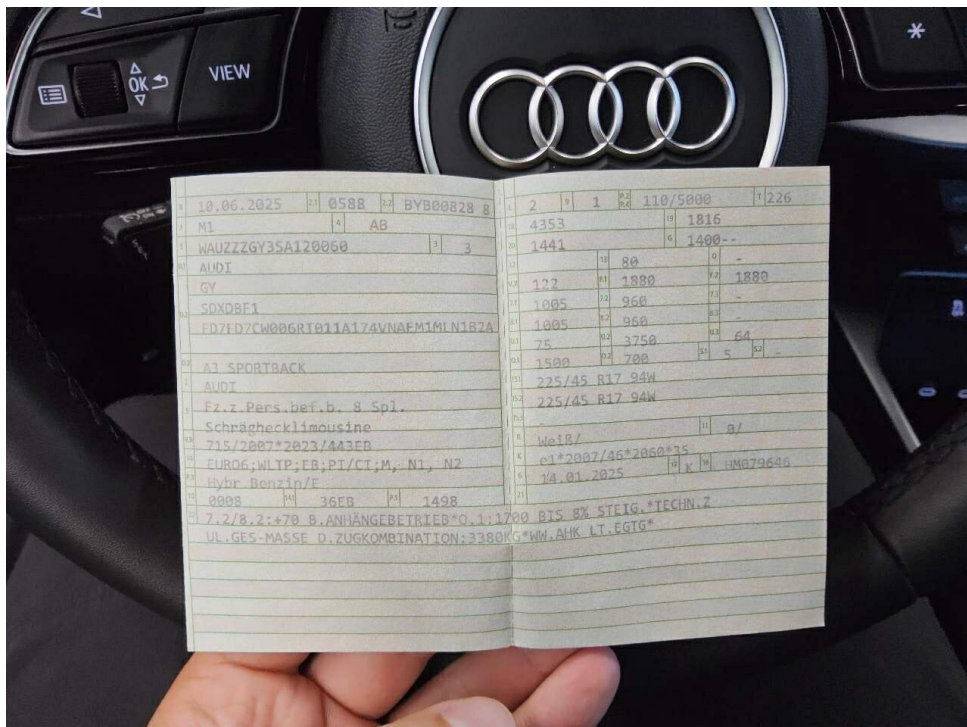 VIEW
OK
*
B 10.06.2025 2.1 0588 2.2 BYB00828 8
J M1 4 AB
E WAUZZZGY3SA120060 3 3
D.1 AUDI
GY
D.2 SDXDBF1
FD7FD7CW006RT011A174VNAEM1MLN1B2A
D.3 A3 SPORTBACK
2 AUDI
5 Fz.z.Pers.bef.b. 8 Spl.
Schräghecklimousine
V.9 715/2007*2023/443EB
14 EURO6;WLTP;EB;PI/CT;M, N1, N2
P.3 Hybr.Benzin/E
10 0008 14.1 36EB P.1 1498
22 7.2/8.2:+70 B.ANHÄNGEBETRIEB*O.1:1700 BIS 8% STEIG.*TECHN.Z
UL.GES-MASSE D.ZUGKOMBINATION:3380KG*WW.AHK LT.EGTG*
L 2 9 1 P.2 P.4 110/5000 T 226
18 4353 19 1816
20 1441 G 1400--
12 13 80 Q -
V.7 122 F.1 1880 F.2 1880
7.1 1005 7.2 960 7.3 -
8.1 1005 8.2 960 8.3 -
U.1 75 U.2 3750 U.3 64
O.1 1500 O.2 700 S.1 5 S.2 -
15.1 225/45 R17 94W
15.2 225/45 R17 94W
15.3 -
R Weiß/ 11 B/
K e1*2007/46*2060*35
6 14.01.2025 17 K 16 HM079646
21